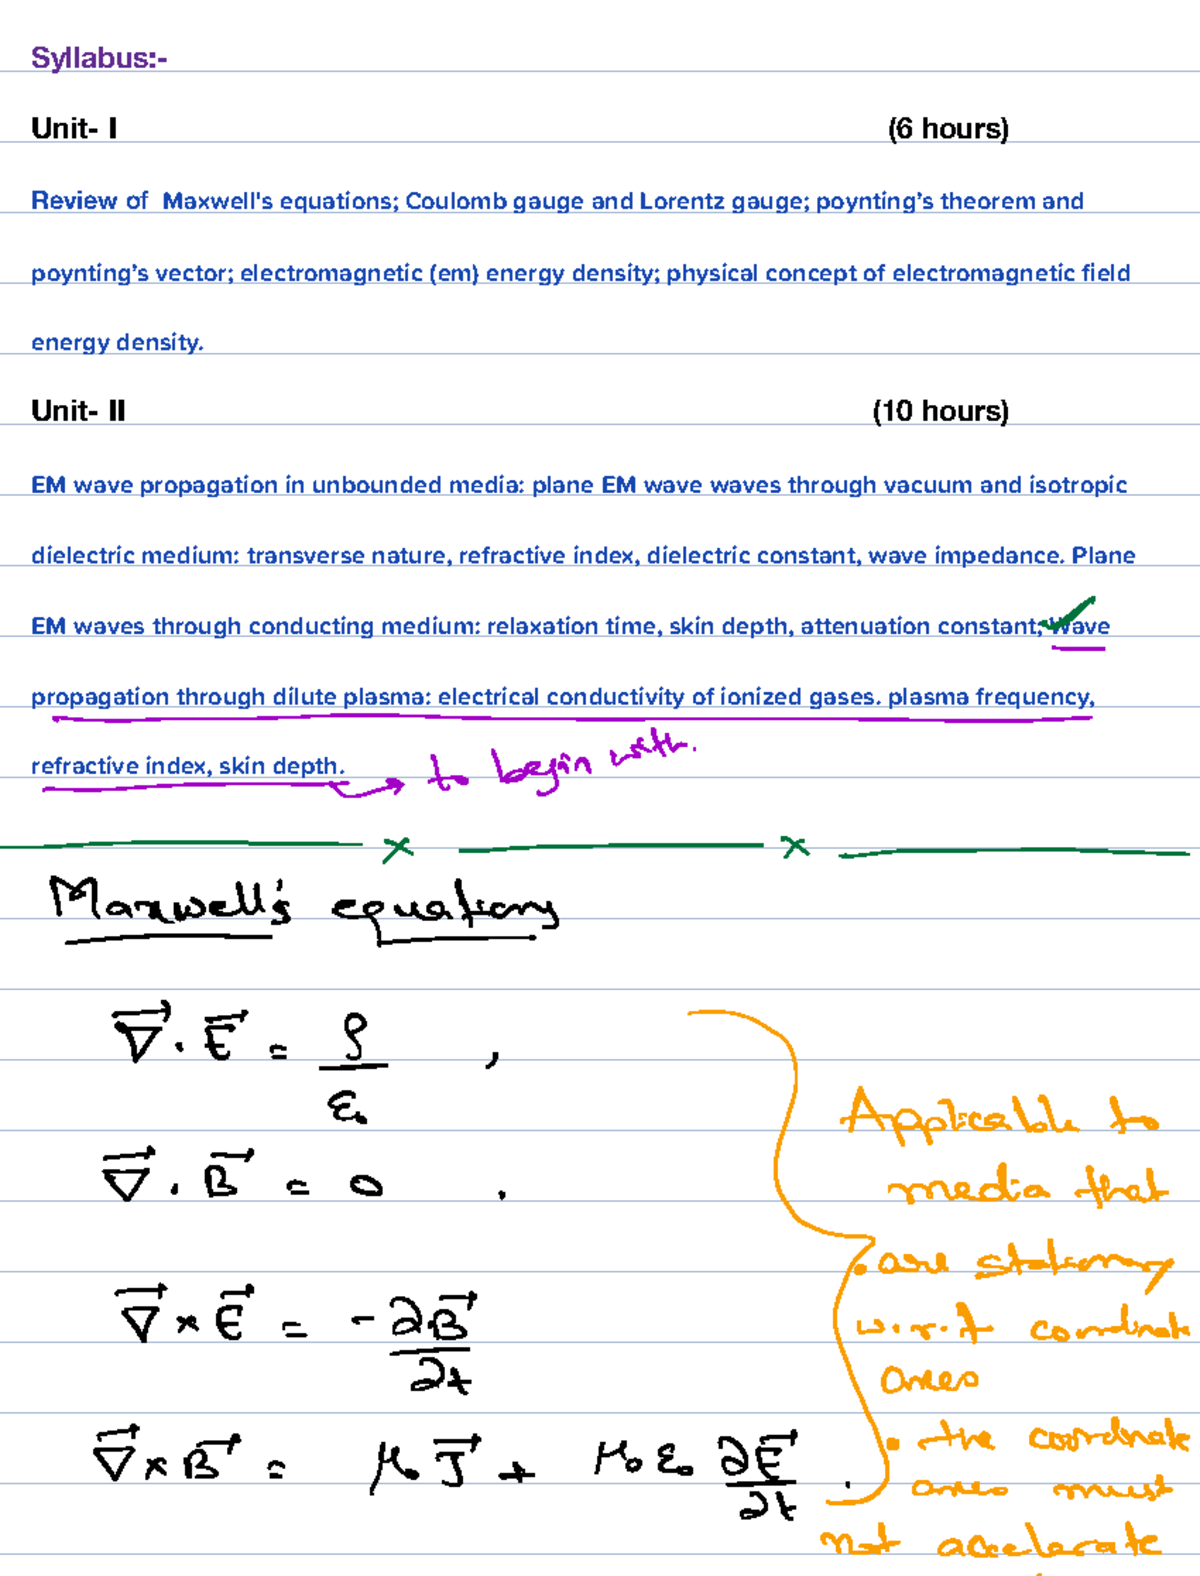 Syllabus:-
Unit- I (6 hours)
Review of Maxwell's equations; Coulomb gauge and Lorentz gauge; poynting's theorem and
poynting's vector; electromagnetic (em) energy density; physical concept of electromagnetic field
energy density.
Unit- II (10 hours)
EM wave propagation in unbounded media: plane EM wave waves through vacuum and isotropic
dielectric medium: transverse nature, refractive index, dielectric constant, wave impedance. Plane
EM waves through conducting medium: relaxation time, skin depth, attenuation constant; Wave
propagation through dilute plasma: electrical conductivity of ionized gases. plasma frequency,
refractive index, skin depth. → to begin with.
Maxwell's equations
∇⃗ · E⃗ = ρ/ε₀ ,
∇⃗ · B⃗ = 0 .
∇⃗ × E⃗ = - ∂B⃗/∂t
∇⃗ × B⃗ = μ₀ J⃗ + μ₀ ε₀ ∂E⃗/∂t .
Applicable to
media that
• are stationary
w.r.t coordinate
axes
• the coordinate
axes must
not accelerate